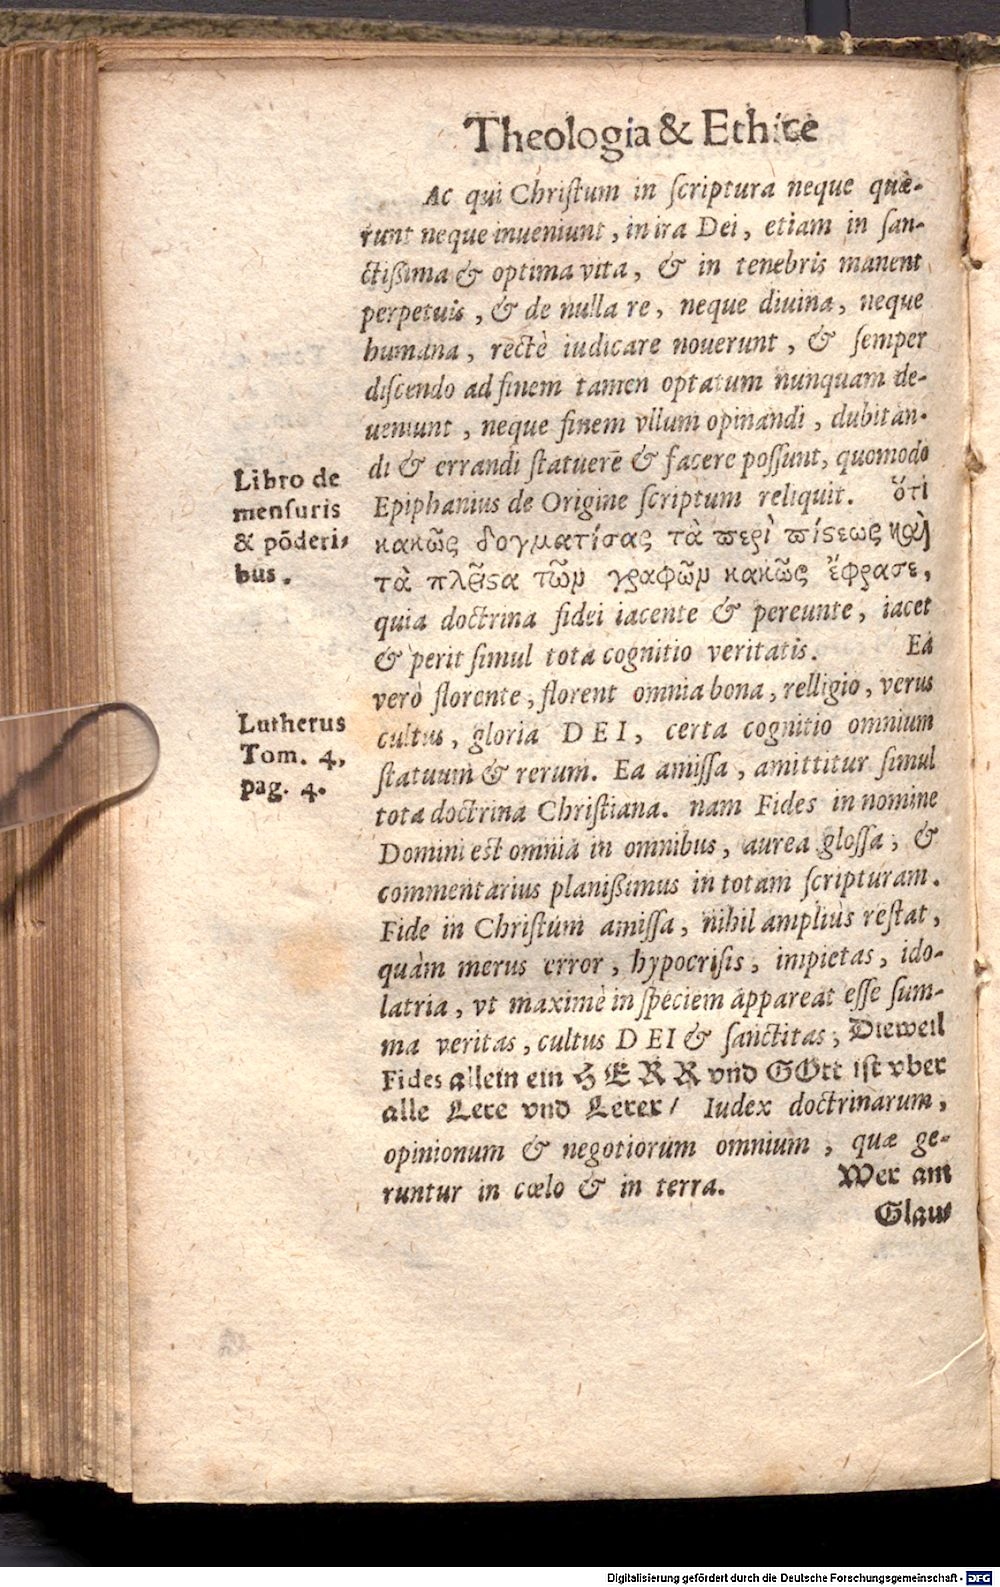 Theologia & Ethice
Ac qui Chriſtum in ſcriptura neque quæ-
runt neque inueniunt, in ira Dei, etiam in ſan-
ctißima & optima vita, & in tenebris manent
perpetuis, & de nulla re, neque diuina, neque
humana, rectè iudicare nouerunt, & ſemper
diſcendo ad finem tamen optatum nunquam de-
ueniunt, neque finem vllum opinandi, dubitan-
di & errandi ſtatuere & facere poſſunt, quomodo
Epiphanius de Origine ſcriptum reliquit. ὅτι
κακῶς δογματίσας τὰ περὶ πίϛεως καὶ
τὰ πλεῖϛα τῶν γραφῶν κακῶς ἔφρασε,
quia doctrina fidei iacente & pereunte, iacet
& perit ſimul tota cognitio veritatis. Ea
verò florente, florent omnia bona, relligio, verus
cultus, gloria DEI, certa cognitio omnium
ſtatuum & rerum. Ea amiſſa, amittitur ſimul
tota doctrina Chriſtiana. nam Fides in nomine
Domini est omnia in omnibus, aurea gloſſa, &
commentarius planißimus in totam ſcripturam.
Fide in Chriſtum amiſſa, nihil ampliùs reſtat,
quàm merus error, hypocriſis, impietas, ido-
latria, vt maximè in ſpeciem appareat eſſe ſum-
ma veritas, cultus DEI & ſanctitas, Dieweil
Fides allein ein HERR vnd GOtt iſt vber
alle Lere vnd Lerer/ Iudex doctrinarum,
opinionum & negotiorum omnium, quæ ge-
runtur in cœlo & in terra. Wer am
Glau
Libro de
menſuris
& põderi-
bus.
Lutherus
Tom. 4,
pag. 4.
Digitalisierung gefördert durch die Deutsche Forschungsgemeinschaft - DFG